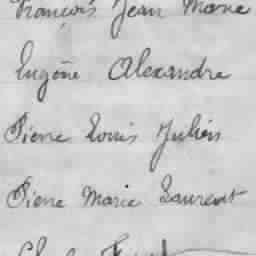 François Jean Marie
Eugène Alexandre
Pierre Louis Julien
Pierre Marie Laurent